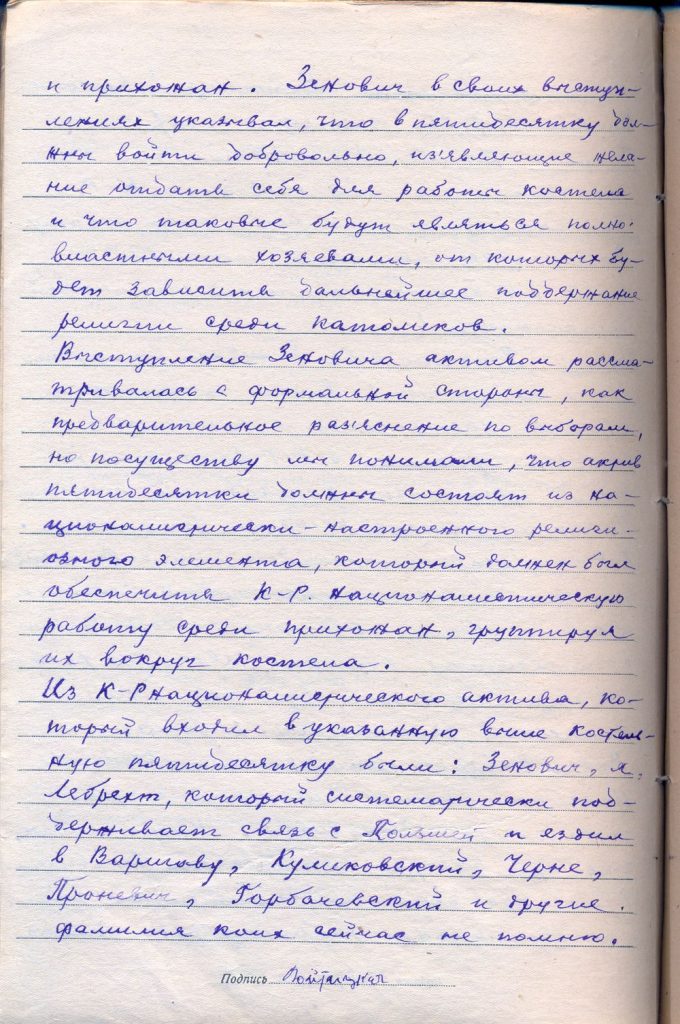 и прихожан. Зенович в своих выступ-
лениях указывал, что в пятидесятку дол-
жны войти добровольно, из'являющие жела-
ние отдать себя для работы костела
и что таковые будут являться полно-
властными хозяевами, от которых бу-
дет зависить дальнейшее поддержание
религии среди католиков.
Выступление Зеновича активом рассма-
тривалась с формальной стороны, как
предварительное раз'яснение по выборам,
но посуществу мы понимали, что актив
пятидесятки должны состоят из на-
ционалистрически-настроенного религи-
озного элемента, который должен был
обеспечить К-Р. националистическую
работу среди прихожан, группируя
их вокруг костела.
Из К-Р националистрического актива, ко-
торый входил в указанную выше костель-
ную пятидесятку были: Зенович, я,
Лебрехт, который систематически под-
держивает связь с Польшей и ездил
в Варшаву, Куликовский, Черне,
Проневич, Горбачевский и другие
фамилия коих сейчас не помню.
Подпись